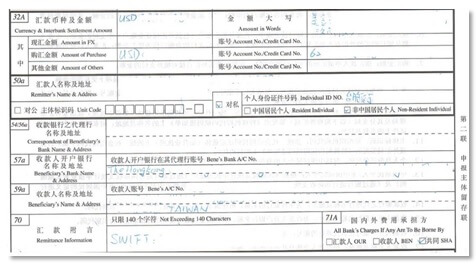 32A 汇款币种及金额 USD 金额大写
Currency & Interbank Settlement Amount Amount in Words
其中 现汇金额 Amount in FX 账号 Account No./Credit Card No.
购汇金额 Amount of Purchase USD: 账号 Account No./Credit Card No. 62
其他金额 Amount of Others 账号 Account No./Credit Card No.
50a 汇款人名称及地址
Remitter's Name & Address
个人身份证件号码 Individual ID NO.
□对公 主体标识码 Unit Code □对私 □中国居民个人 Resident Individual ☑非中国居民个人 Non-Resident Individual
54/56a 收款银行之代理行
名称及地址
Correspondent of Beneficiary's
Bank Name & Address
57a 收款人开户银行
名称及地址
Beneficiary's Bank Name
& Address
收款人开户银行在其代理行账号 Bene's Bank A/C No.
59a 收款人名称及地址
Beneficiary's Name & Address
收款人账号 Bene's A/C No.
TAIWAN
70 汇款附言
Remittance Information
只限 140 个字符 Not Exceeding 140 Characters
SWIFT:
71A 国内外费用承担方
All Bank's Charges If Any Are To Be Borne By
□汇款人 OUR □收款人 BEN ☑共同 SHA
第二联 申报主体留存联